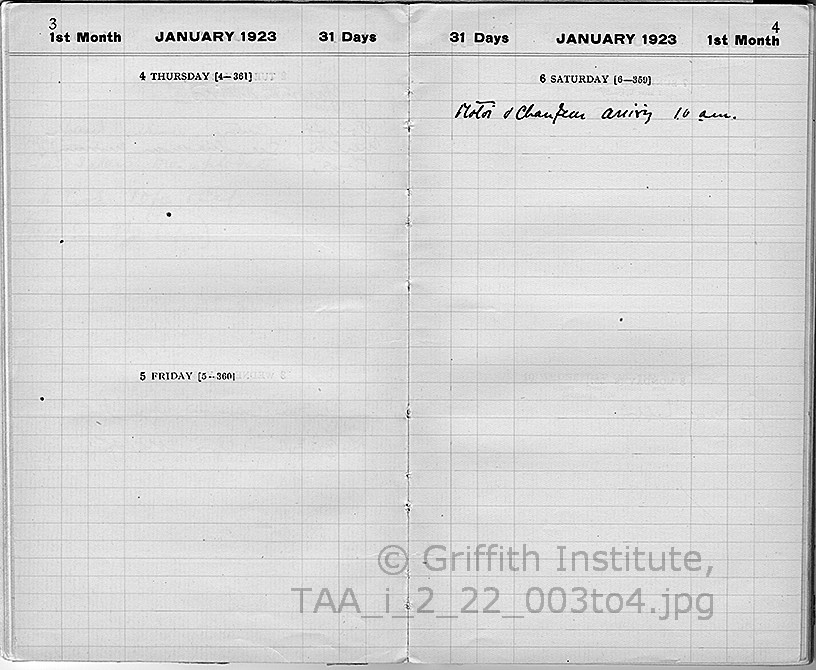 3
1st Month JANUARY 1923 31 Days
4 THURSDAY [4—361]
5 FRIDAY [5—360]
4
31 Days JANUARY 1923 1st Month
6 SATURDAY [6—359]
Motor & Chauffeur arriving 10 am.
© Griffith Institute,
TAA_i_2_22_003to4.jpg